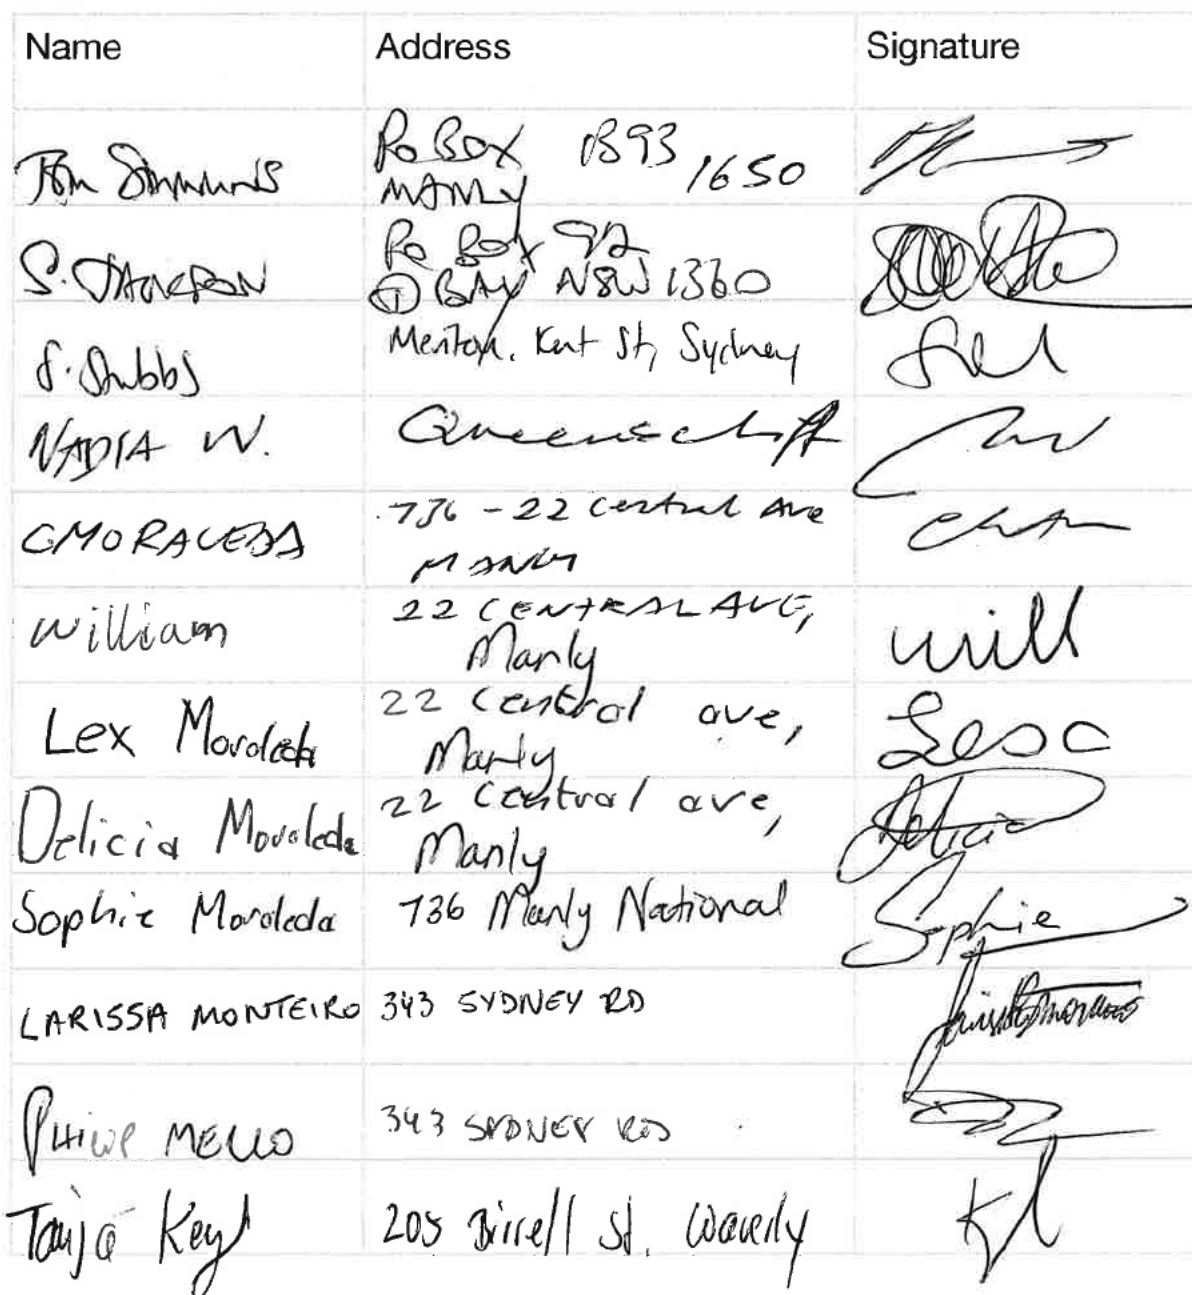 Name Address Signature
Tom Simmons PO BOX 1893 /1650
MANLY
S. JACKSON PO BOX 92
① BAY NSW 1360
S. Stubbs Meriton, Kent St, Sydney
NADIA W. Queenscliff
C MORALEDA 736 - 22 Central Ave
MANLY
William 22 CENTRAL AVE, Will
Manly
Lex Moraleda 22 Central ave,
Manly
Delicia Moraleda 22 Central ave, Delicia
Manly
Sophie Moraleda 736 Manly National Sophie
LARISSA MONTEIRO 343 SYDNEY RD
PHILIP MELLO 343 SYDNEY RD
Tanja Keyl 205 Birrell St. Waverly